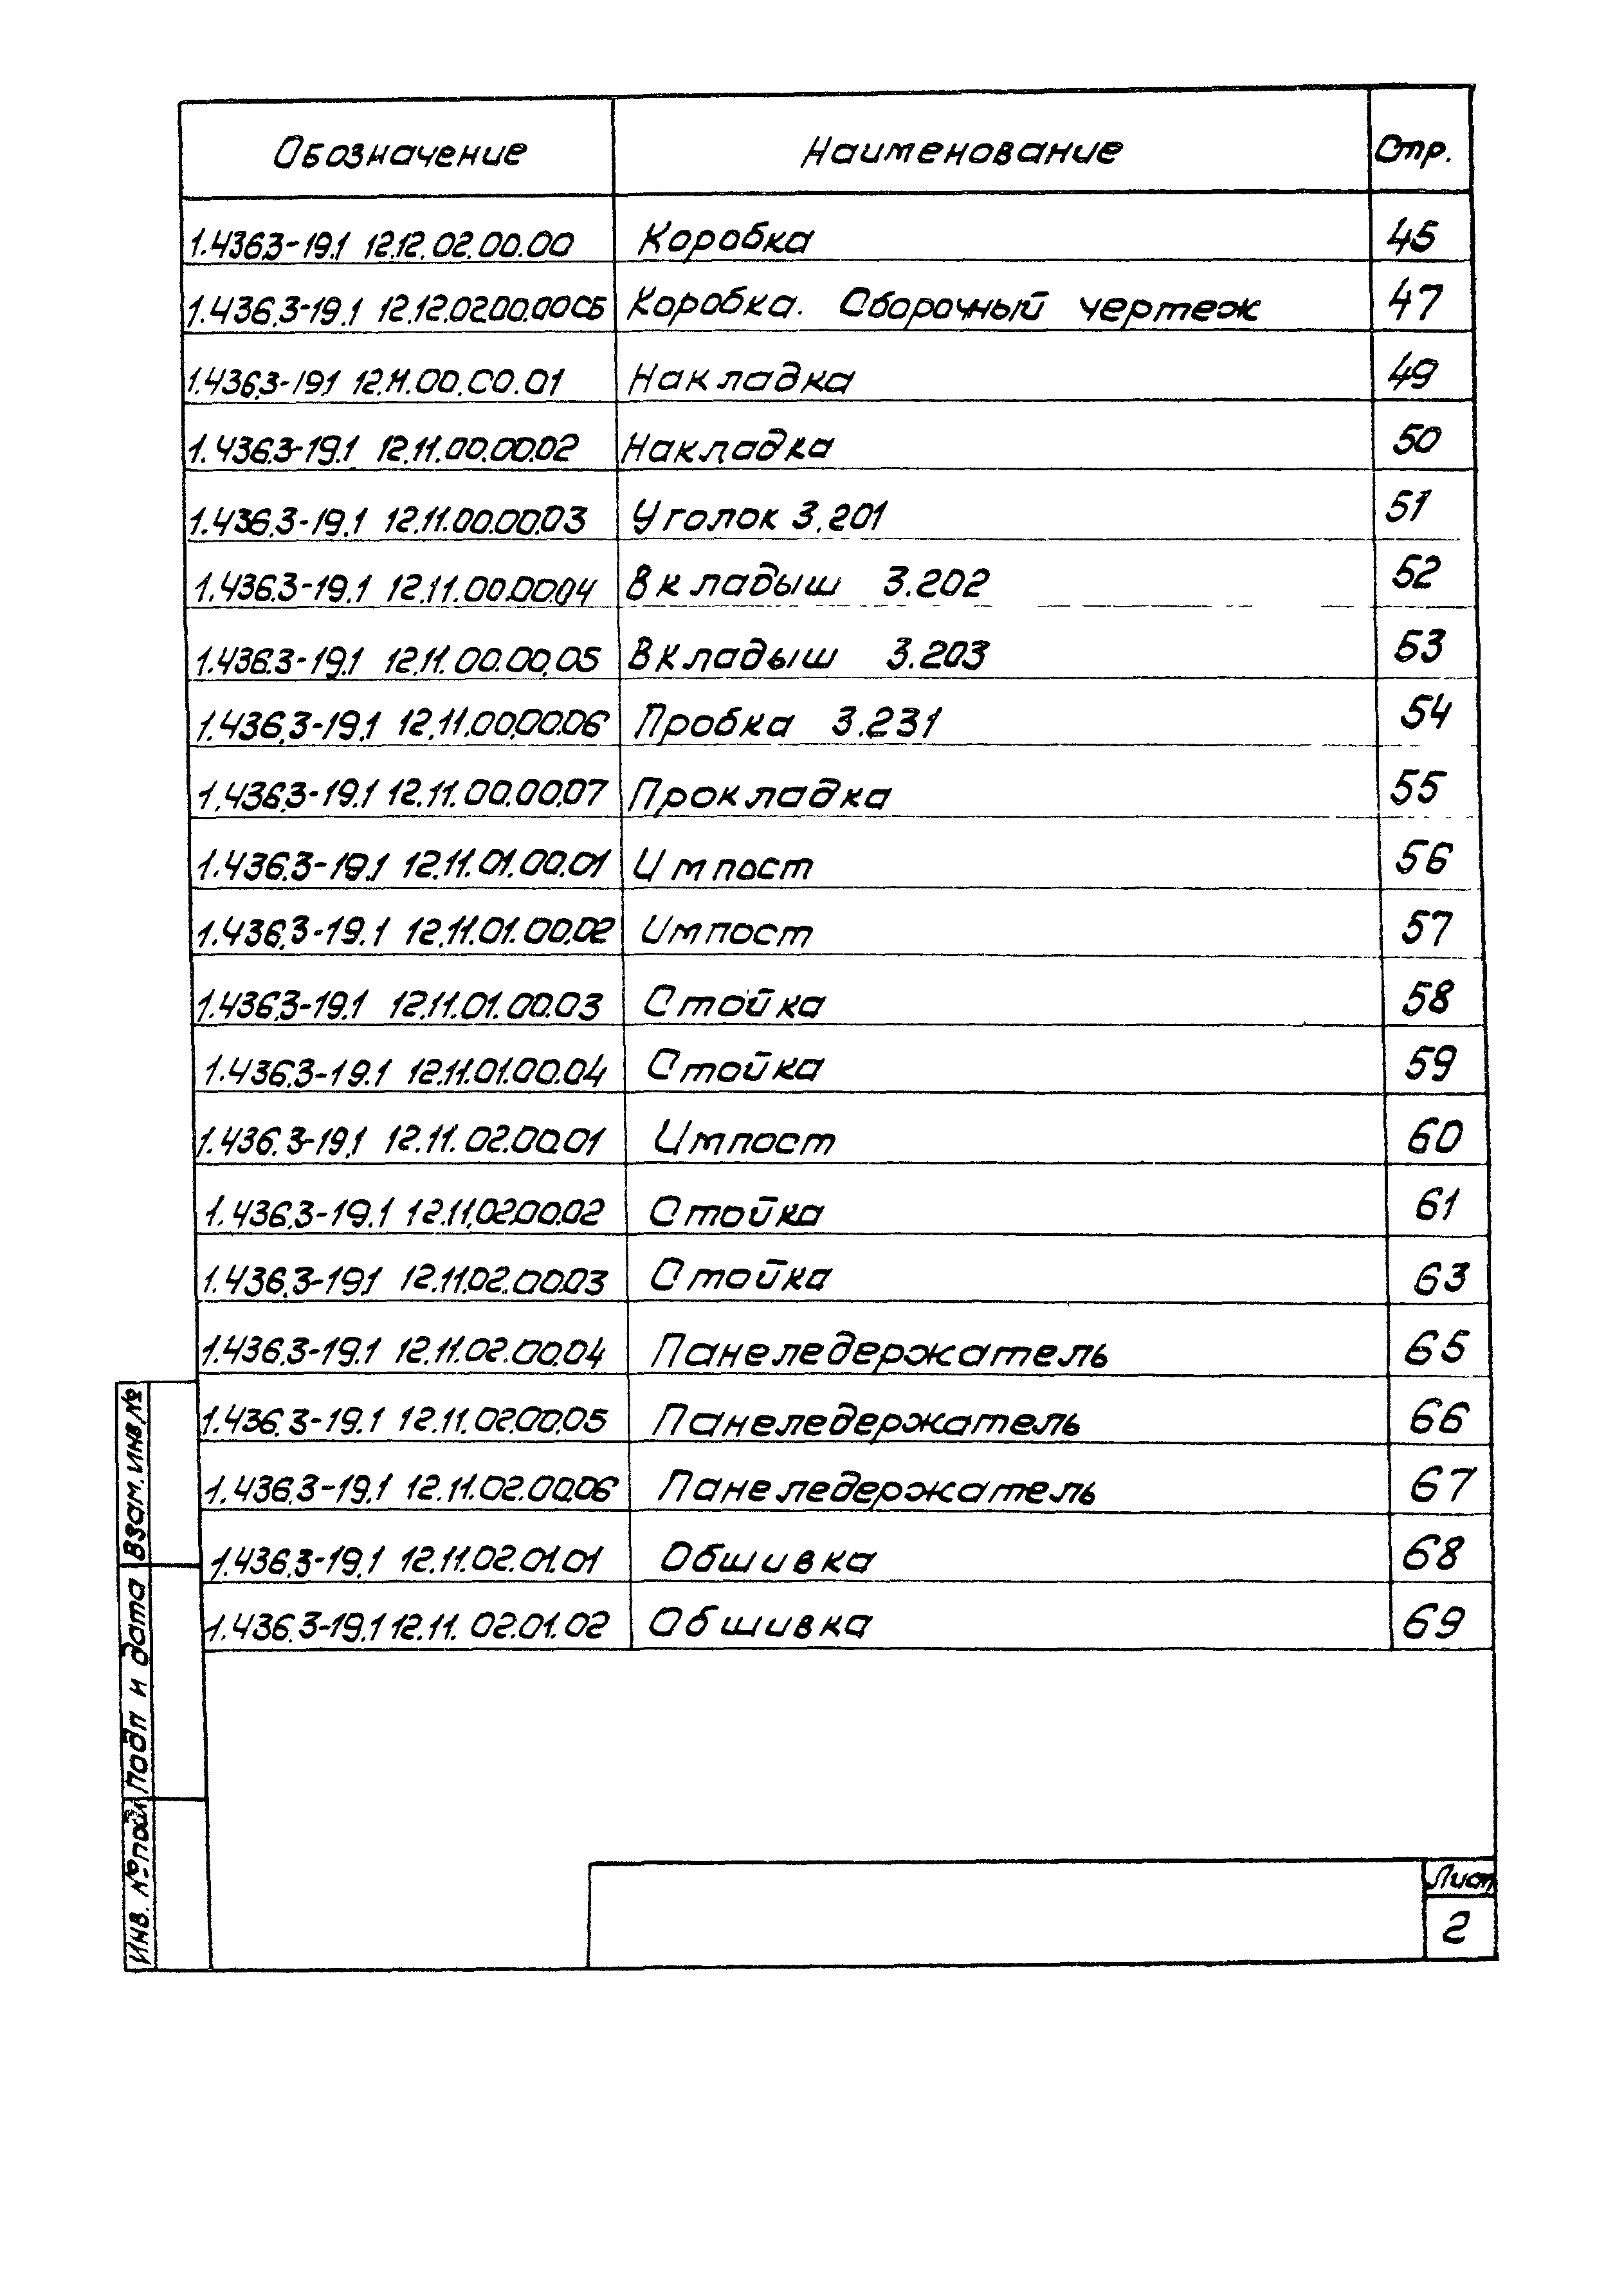 Обозначение Наименование Стр.
1.436.3-19.1 12.12.02.00.00 Коробка 45
1.436.3-19.1 12.12.02.00.00СБ Коробка. Сборочный чертеж 47
1.436.3-19.1 12.11.00.00.01 Накладка 49
1.436.3-19.1 12.11.00.00.02 Накладка 50
1.436.3-19.1 12.11.00.00.03 Уголок 3.201 51
1.436.3-19.1 12.11.00.00.04 Вкладыш 3.202 52
1.436.3-19.1 12.11.00.00.05 Вкладыш 3.203 53
1.436.3-19.1 12.11.00.00.06 Пробка 3.231 54
1.436.3-19.1 12.11.00.00.07 Прокладка 55
1.436.3-19.1 12.11.01.00.01 Импост 56
1.436.3-19.1 12.11.01.00.02 Импост 57
1.436.3-19.1 12.11.01.00.03 Стойка 58
1.436.3-19.1 12.11.01.00.04 Стойка 59
1.436.3-19.1 12.11.02.00.01 Импост 60
1.436.3-19.1 12.11.02.00.02 Стойка 61
1.436.3-19.1 12.11.02.00.03 Стойка 63
1.436.3-19.1 12.11.02.00.04 Панеледержатель 65
1.436.3-19.1 12.11.02.00.05 Панеледержатель 66
1.436.3-19.1 12.11.02.00.06 Панеледержатель 67
1.436.3-19.1 12.11.02.01.01 Обшивка 68
1.436.3-19.1 12.11.02.01.02 Обшивка 69
Взам. инв. №
Подп и дата
Инв. № подл
Лист
2